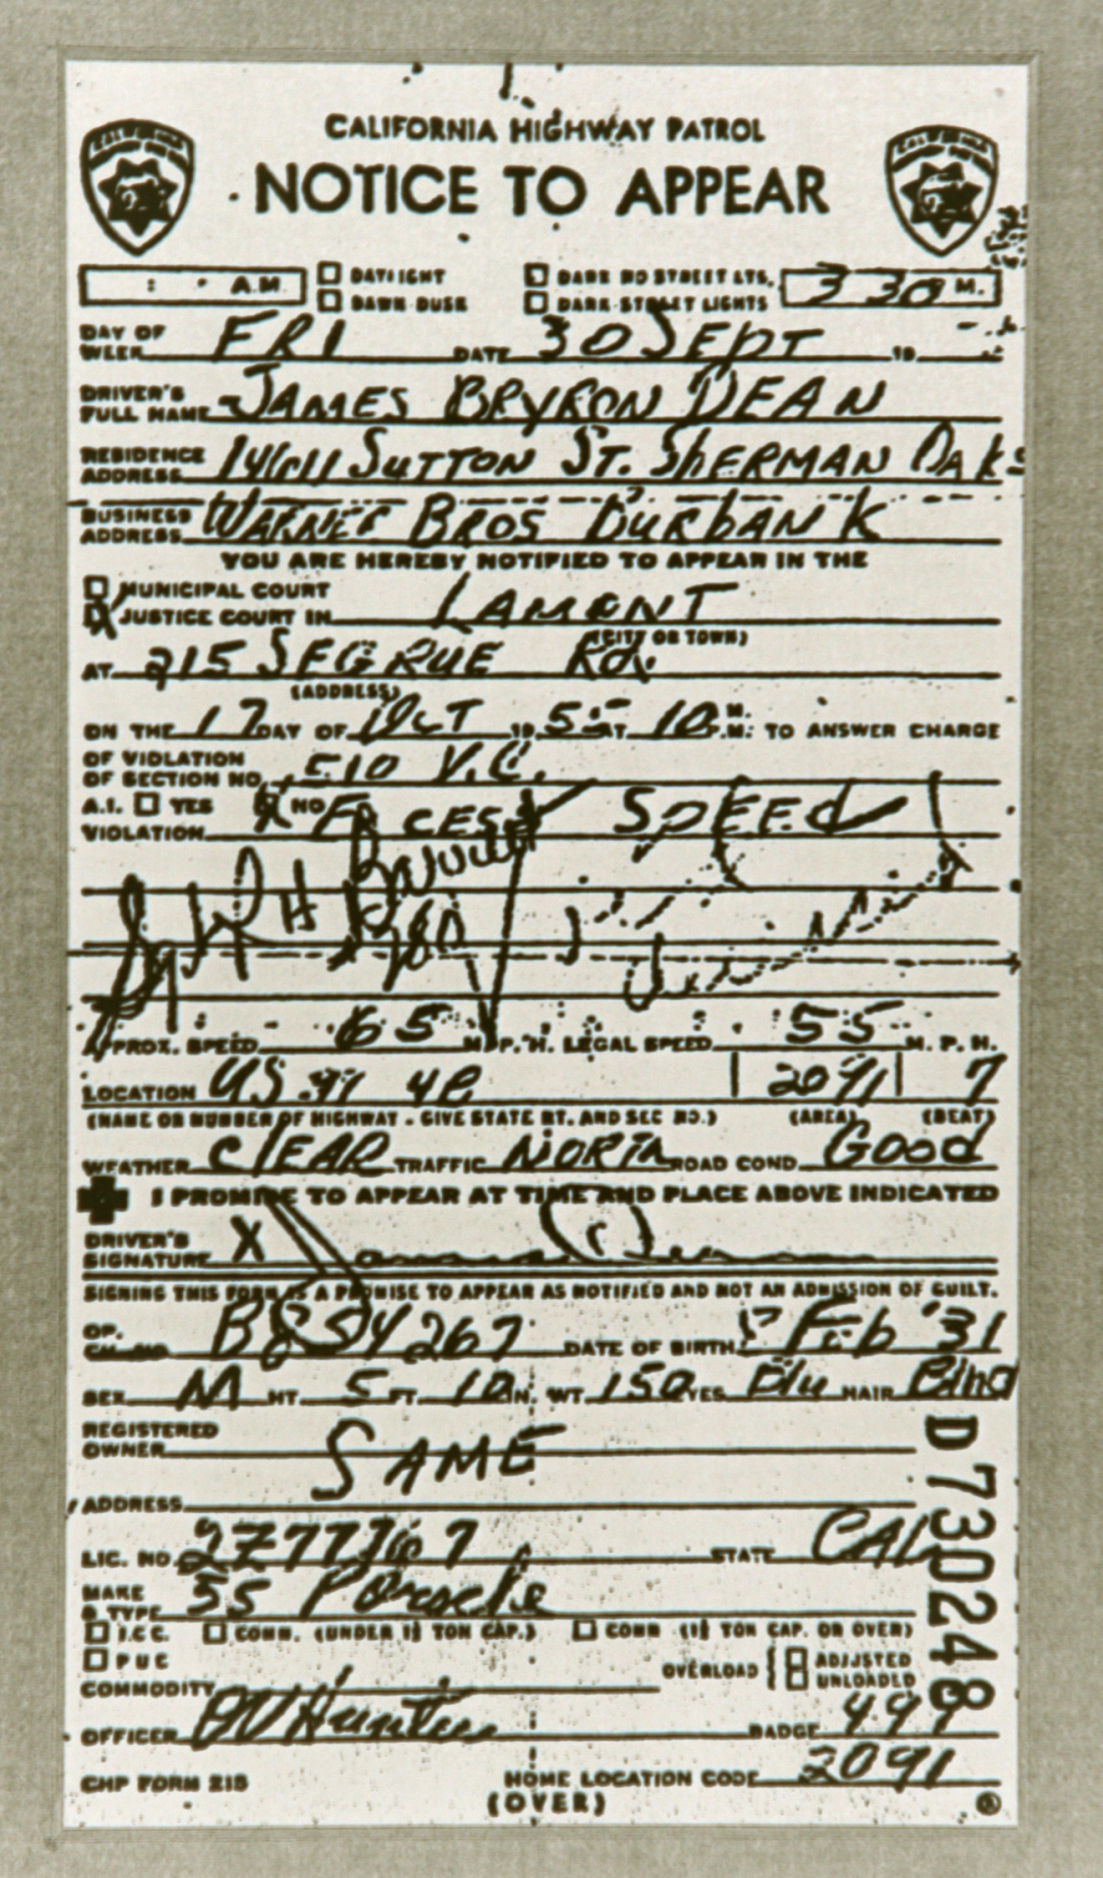 CALIFORNIA HIGHWAY PATROL
NOTICE TO APPEAR
A.M. DAYLIGHT DARK NO STREET LTS. 3 30 M.
DAWN-DUSK DARK-STREET LIGHTS
DAY OF WEEK FRI DATE 30 SEPT 19
DRIVER'S FULL NAME JAMES BRYRON DEAN
RESIDENCE ADDRESS 14611 SUTTON ST. SHERMAN OAKS
BUSINESS ADDRESS WARNER BROS BURBANK
YOU ARE HEREBY NOTIFIED TO APPEAR IN THE
MUNICIPAL COURT
X JUSTICE COURT IN LAMONT
(CITY OR TOWN)
AT 215 SEGRUE Rd.
(ADDRESS)
ON THE 17 DAY OF OCT 19 55 AT 10 M. P.M. TO ANSWER CHARGE
OF VIOLATION
OF SECTION NO. 510 V.C.
A.I. YES X NO
VIOLATION EXCESS SPEED
APPROX. SPEED 65 M.P.H. LEGAL SPEED 55 M.P.H.
LOCATION US 99 2091 7
(NAME OR NUMBER OF HIGHWAY - GIVE STATE RT. AND SEC NO.) (AREA) (BEAT)
WEATHER CLEAR TRAFFIC NORM ROAD COND. Good
I PROMISE TO APPEAR AT TIME AND PLACE ABOVE INDICATED
DRIVER'S SIGNATURE X James Dean
SIGNING THIS FORM IS A PROMISE TO APPEAR AS NOTIFIED AND NOT AN ADMISSION OF GUILT.
OP. B854267 DATE OF BIRTH Feb '31
SEX M HT. 5 FT. 10 IN. WT. 150 EYES Blu HAIR Blnd
REGISTERED OWNER SAME
ADDRESS
LIC. NO. 2Z77767 STATE CAL
MAKE & TYPE 55 Porsche
I.C.C. COMM. (UNDER 1½ TON CAP.) COMM (1½ TON CAP. OR OVER)
PUC OVERLOAD { ADJUSTED
UNLOADED
COMMODITY
OFFICER OV Hunter BADGE 499
CHP FORM 215 HOME LOCATION CODE 2091
(OVER)
D 730248